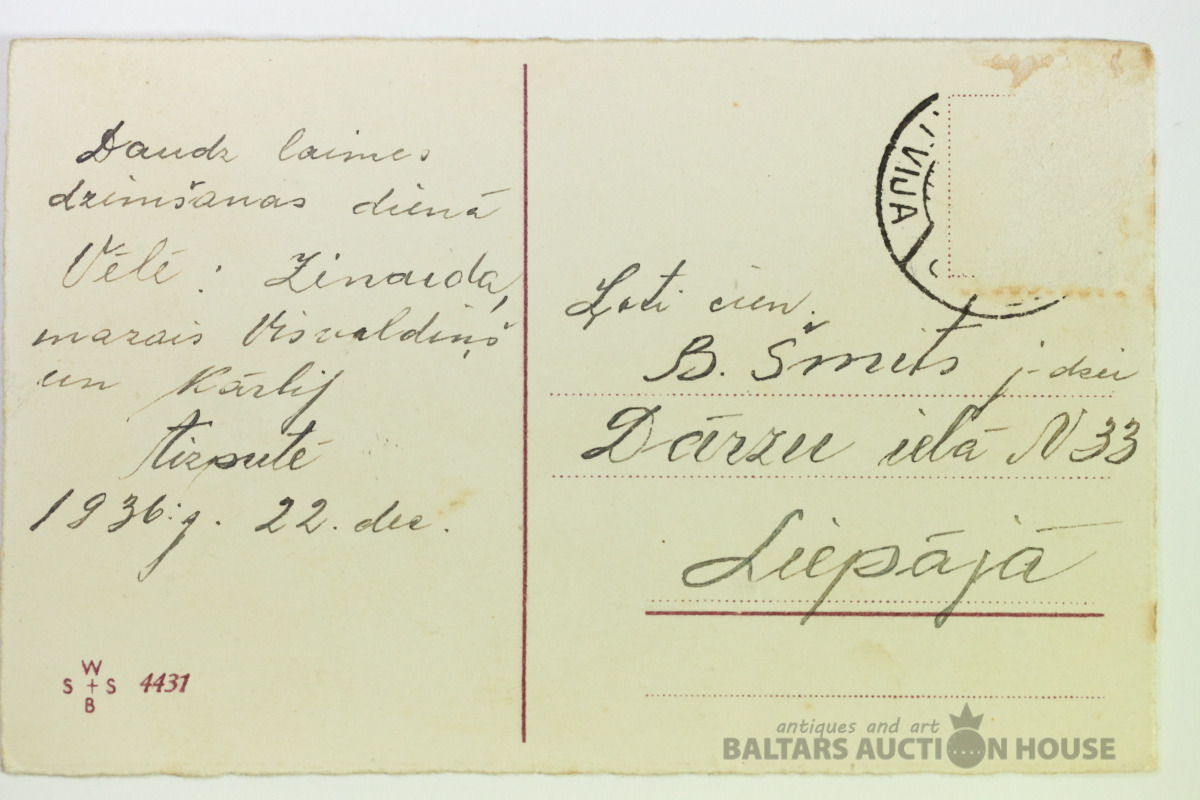 Daudz laimes
dzimšanas dienā
Vēlē: Zinaida,
mazais Visvaldiņš
un Kārlij
Aizputē
1936.g. 22. dec.
W
S + S 4431
B
VIJA
Ļoti cien.
B. Šmits j-dzei
Dārzu ielā N 33
Liepājā
antiques and art
BALTARS AUCTION HOUSE